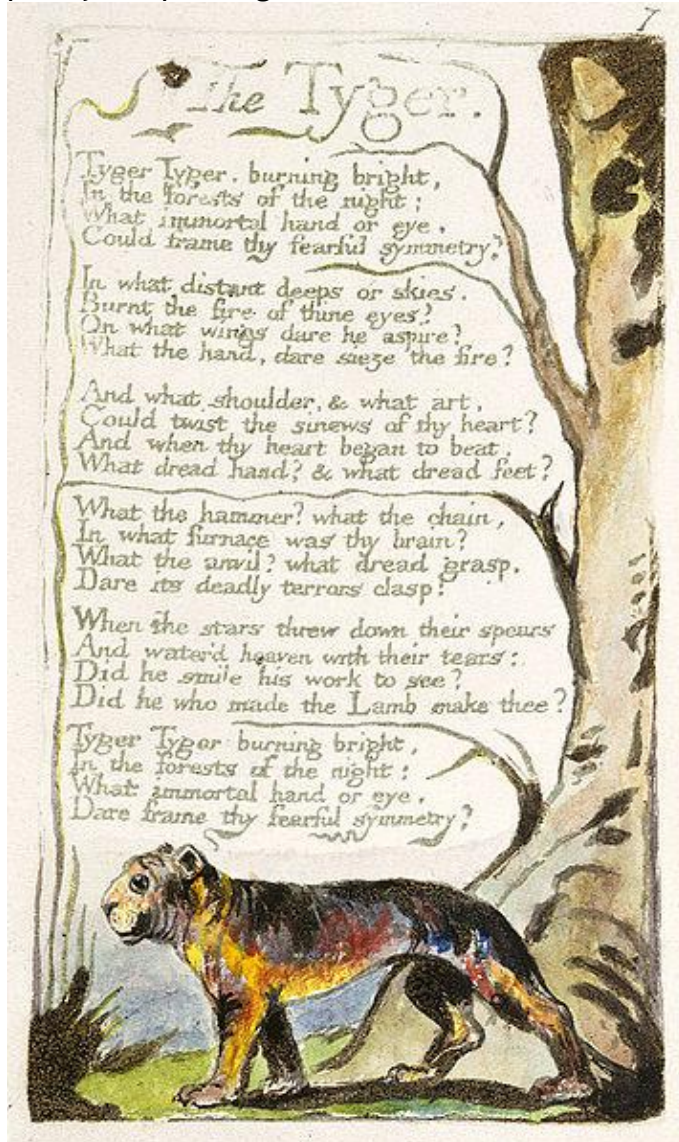 7
The Tyger.
Tyger Tyger, burning bright,
In the forests of the night;
What immortal hand or eye,
Could frame thy fearful symmetry?
In what distant deeps or skies.
Burnt the fire of thine eyes?
On what wings dare he aspire?
What the hand, dare sieze the fire?
And what shoulder, & what art,
Could twist the sinews of thy heart?
And when thy heart began to beat,
What dread hand? & what dread feet?
What the hammer? what the chain,
In what furnace was thy brain?
What the anvil? what dread grasp,
Dare its deadly terrors clasp!
When the stars threw down their spears
And water'd heaven with their tears:
Did he smile his work to see?
Did he who made the Lamb make thee?
Tyger Tyger burning bright,
In the forests of the night:
What immortal hand or eye,
Dare frame thy fearful symmetry?